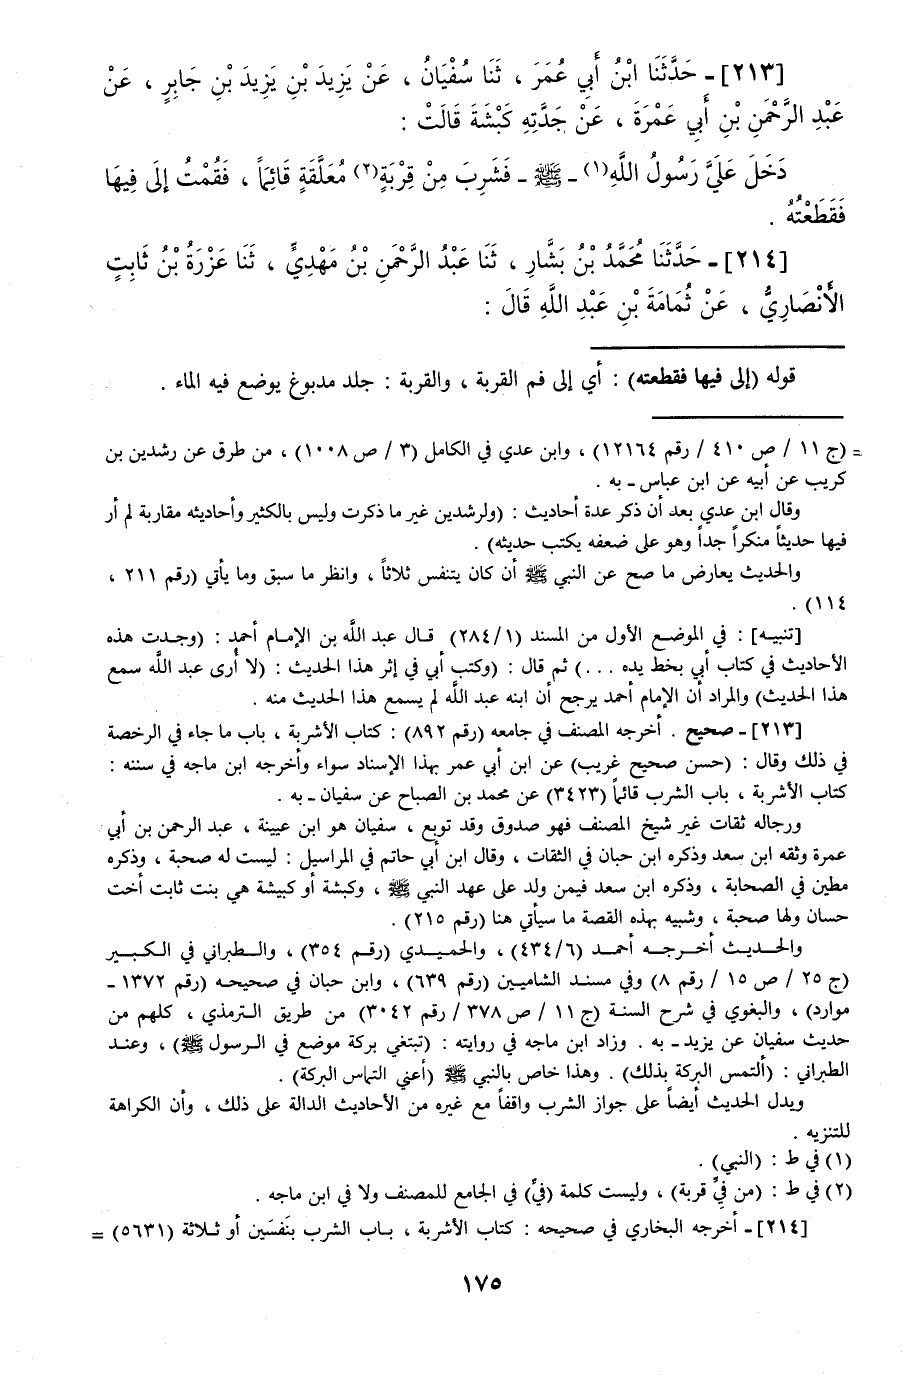 [٢١٣] ـ حَدَّثَنَا ابْنُ أَبِي عُمَرَ ، ثَنَا سُفْيَانُ ، عَنْ يَزِيدَ بْنِ يَزِيدَ بْنِ جَابِرٍ ، عَنْ
عَبْدِ الرَّحْمَنِ بْنِ أَبِي عَمْرَةَ ، عَنْ جَدَّتِهِ كَبْشَةَ قَالَتْ :
دَخَلَ عَلَيَّ رَسُولُ اللَّهِ(١) ـ ﷺ ـ فَشَرِبَ مِنْ قِرْبَةٍ(٢) مُعَلَّقَةٍ قَائِمًا ، فَقُمْتُ إِلَى فِيهَا
فَقَطَعْتُهُ .
[٢١٤] ـ حَدَّثَنَا مُحَمَّدُ بْنُ بَشَّارٍ ، ثَنَا عَبْدُ الرَّحْمَنِ بْنُ مَهْدِيٍّ ، ثَنَا عَزْرَةُ بْنُ ثَابِتٍ
الأَنْصَارِيُّ ، عَنْ ثُمَامَةَ بْنِ عَبْدِ اللَّهِ قَالَ :
قوله (إلى فيها فقطعته) : أي إلى فم القربة ، والقربة : جلد مدبوغ يوضع فيه الماء .
= (ج ١١ / ص ٤١٠ / رقم ١٢١٦٤) ، وابن عدي في الكامل (٣ / ص ١٠٠٨) ، من طرق عن رشدين بن
كريب عن أبيه عن ابن عباس ـ به .
وقال ابن عدي بعد أن ذكر عدة أحاديث : (ولرشدين غير ما ذكرت وليس بالكثير وأحاديثه مقاربة لم أر
فيها حديثاً منكراً جداً وهو على ضعفه يكتب حديثه) .
والحديث يعارض ما صح عن النبي ﷺ أن كان يتنفس ثلاثاً ، وانظر ما سبق وما يأتي (رقم ٢١١ ،
١١٤) .
[تنبيه] : في الموضع الأول من المسند (٢٨٤/١) قال عبد الله بن الإمام أحمد : (وجدت هذه
الأحاديث في كتاب أبي بخط يده . . .) ثم قال : (وكتب أبي في إثر هذا الحديث : (لا أرى عبد الله سمع
هذا الحديث) والمراد أن الإمام أحمد يرجح أن ابنه عبد الله لم يسمع هذا الحديث منه .
[٢١٣] ـ صحيح . أخرجه المصنف في جامعه (رقم ٨٩٢) : كتاب الأشربة ، باب ما جاء في الرخصة
في ذلك وقال : (حسن صحيح غريب) عن ابن أبي عمر بهذا الإسناد سواء وأخرجه ابن ماجه في سننه :
كتاب الأشربة ، باب الشرب قائماً (٣٤٢٣) عن محمد بن الصباح عن سفيان ـ به .
ورجاله ثقات غير شيخ المصنف فهو صدوق وقد توبع ، سفيان هو ابن عيينة ، عبد الرحمن بن أبي
عمرة وثقه ابن سعد وذكره ابن حبان في الثقات ، وقال ابن أبي حاتم في المراسيل : ليست له صحبة ، وذكره
مطين في الصحابة ، وذكره ابن سعد فيمن ولد على عهد النبي ﷺ ، وكبشة أو كبيشة هي بنت ثابت أخت
حسان ولها صحبة ، وشبيه بهذه القصة ما سيأتي هنا (رقم ٢١٥) .
والحديث أخرجه أحمد (٤٣٤/٦) ، والحميدي (رقم ٣٥٤) ، والطبراني في الكبير
(ج ٢٥ / ص ١٥ / رقم ٨) وفي مسند الشاميين (رقم ٦٣٩) ، وابن حبان في صحيحه (رقم ١٣٧٢ ـ
موارد) ، والبغوي في شرح السنة (ج ١١ / ص ٣٧٨ / رقم ٣٠٤٢) من طريق الترمذي ، كلهم من
حديث سفيان عن يزيد ـ به . وزاد ابن ماجه في روايته : (تبتغي بركة موضع في الرسول ﷺ) ، وعند
الطبراني : (ألتمس البركة بذلك) . وهذا خاص بالنبي ﷺ (أعني التماس البركة) .
ويدل الحديث أيضاً على جواز الشرب واقفاً مع غيره من الأحاديث الدالة على ذلك ، وأن الكراهة
للتنزيه .
(١) في ط : (النبي) .
(٢) في ط : (من فيِّ قربة) ، وليست كلمة (فيِّ) في الجامع للمصنف ولا في ابن ماجه .
[٢١٤] ـ أخرجه البخاري في صحيحه : كتاب الأشربة ، باب الشرب بنَفَسَين أو ثلاثة (٥٦٣١) =
١٧٥